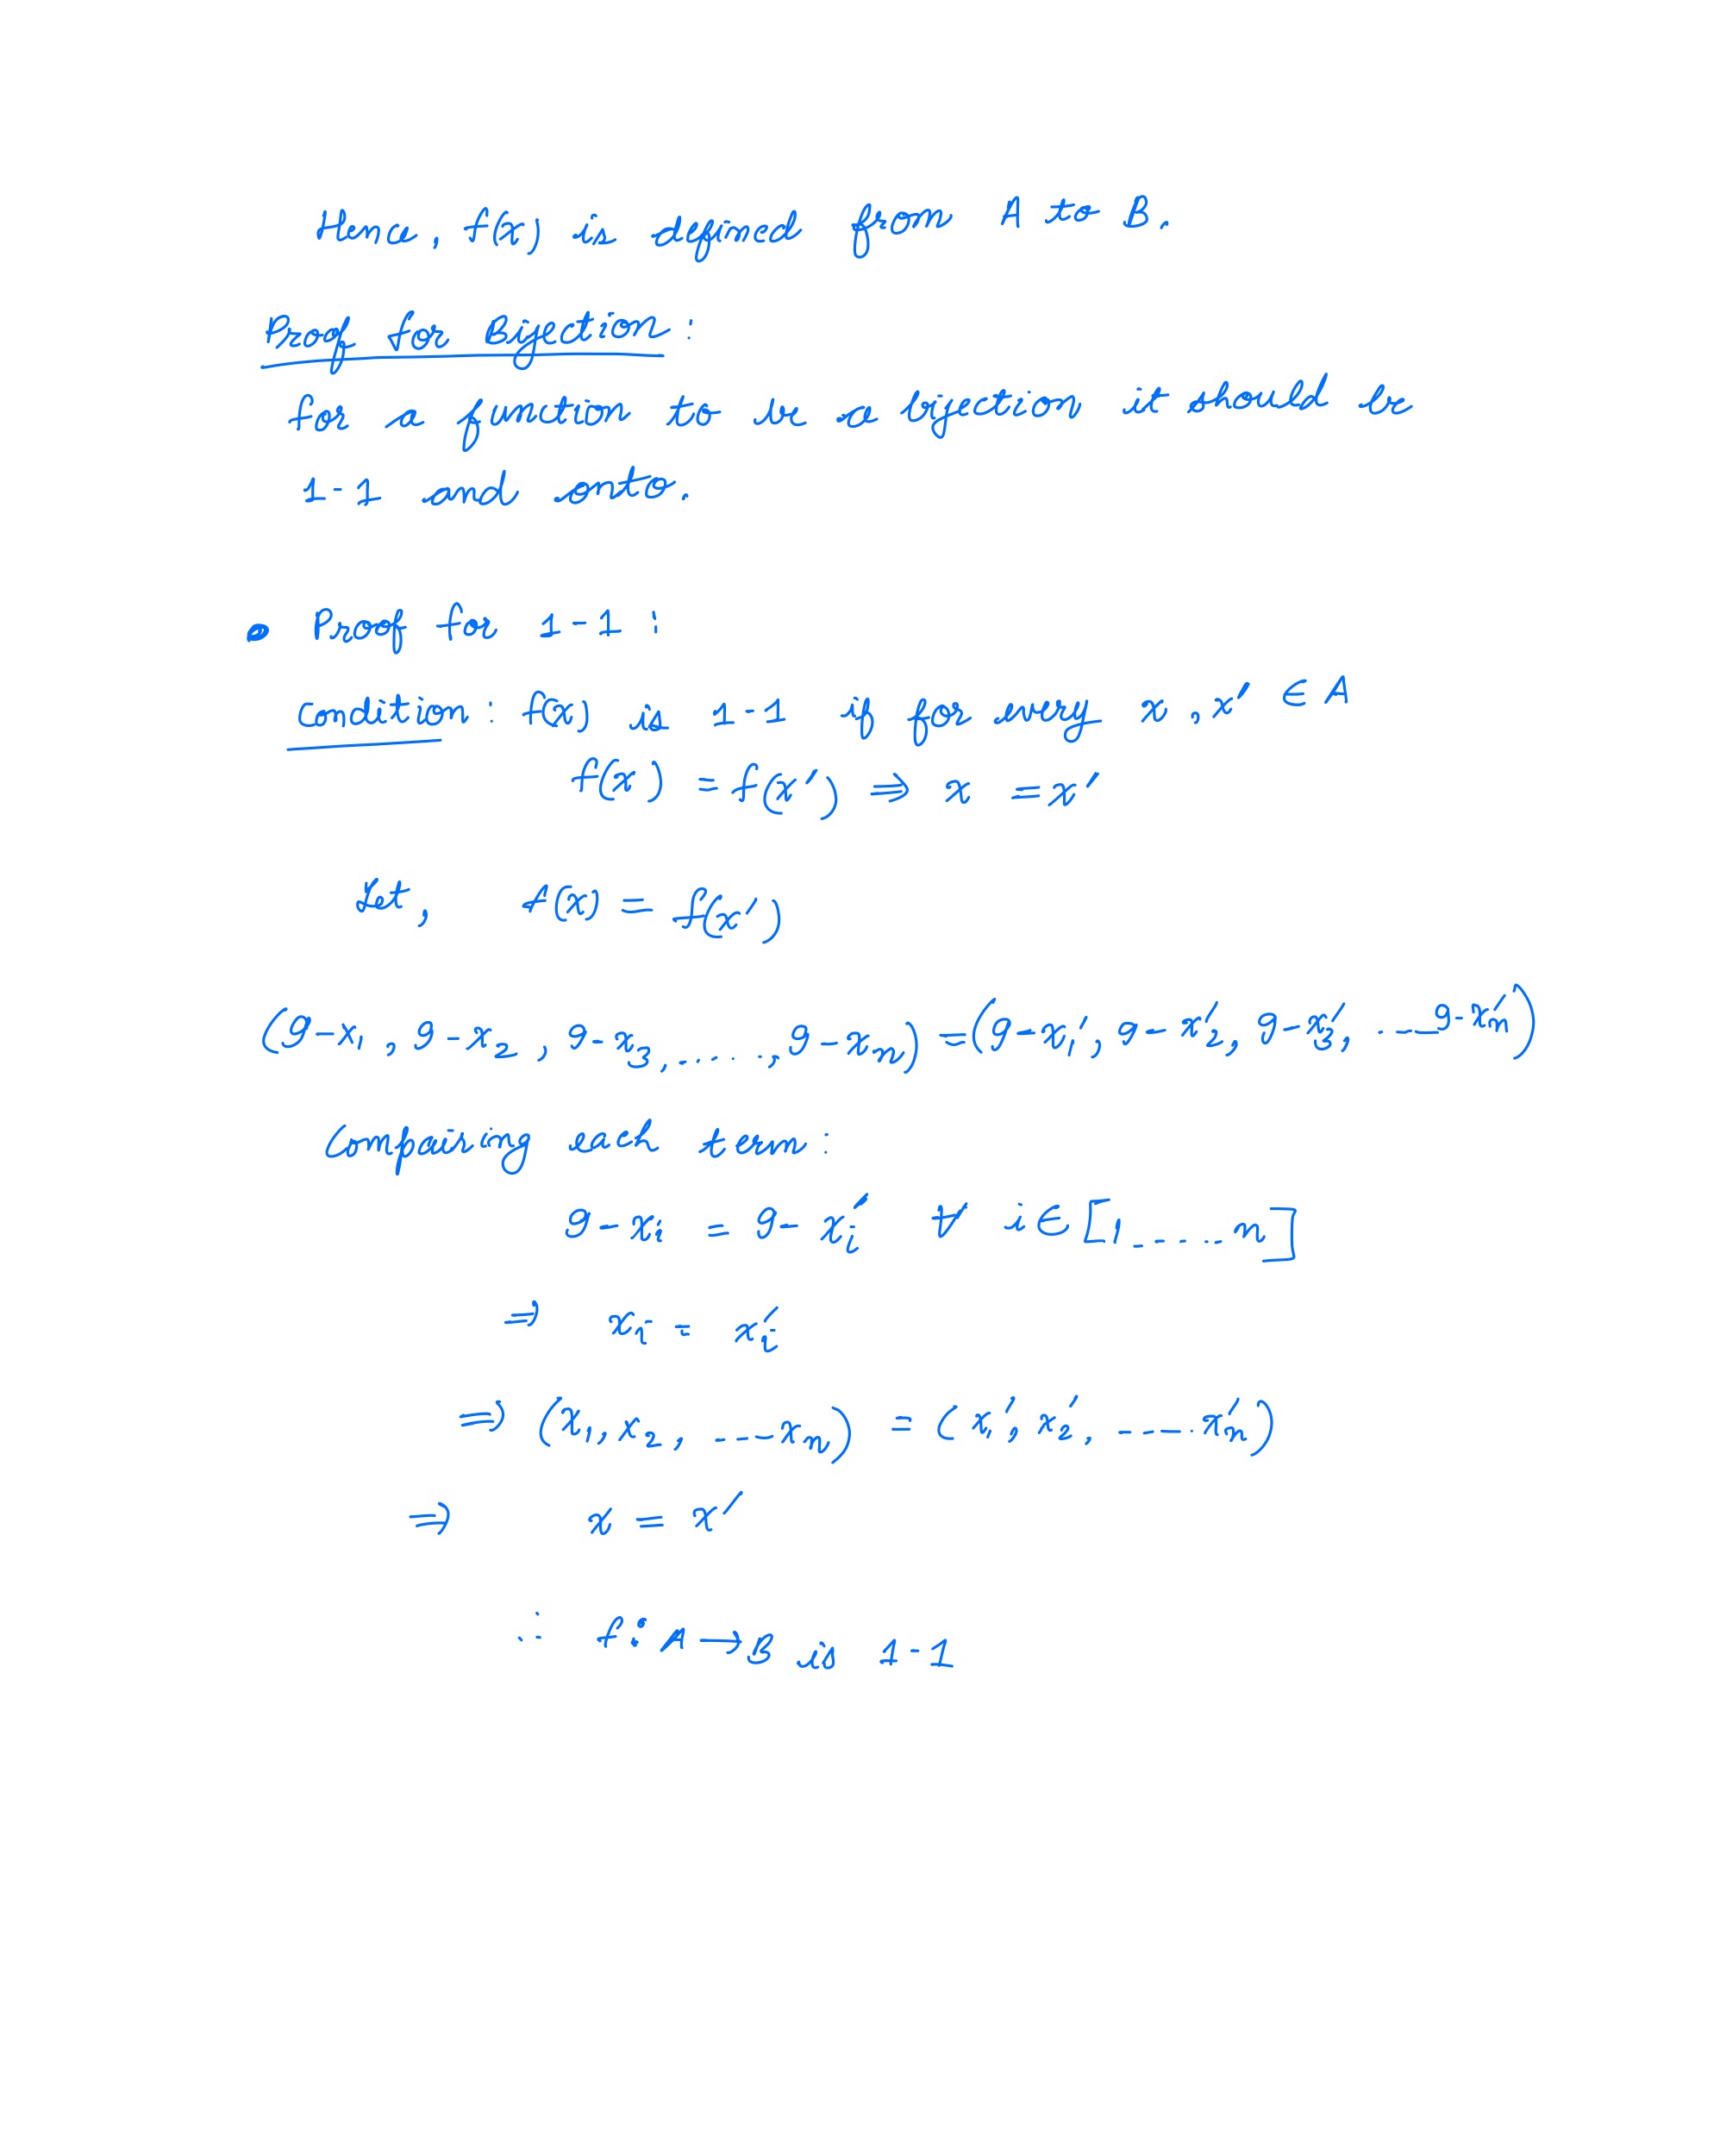 Hence, f(x) is defined from A to B.
Proof for Bijection :
for a function to be a bijection it should be
1-1 and onto.
• Proof for 1-1 :
Condition : f(x) is 1-1 if for every x, x' ∈ A
f(x) = f(x') ⇒ x = x'
Let, f(x) = f(x')
(9-x₁, 9-x₂, 9-x₃, ....., 9-xₙ) = (9-x₁', 9-x₂', 9-x₃', ....9-xₙ')
Compairing each term :
9-xᵢ = 9-xᵢ' ∀ i ∈ [1.....n]
⇒ xᵢ = xᵢ'
⇒ (x₁, x₂, ....xₙ) = (x₁', x₂', ....xₙ')
⇒ x = x'
∴ f : A → B is 1-1